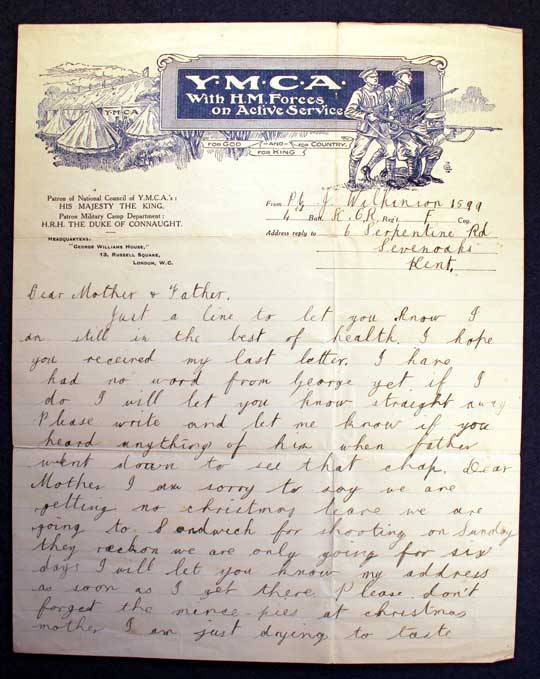 Y·M·C·A·
With H.M. Forces
on Active Service
Y M C A
FOR GOD — AND — FOR COUNTRY.
FOR KING
Patron of National Council of Y.M.C.A.'s:
HIS MAJESTY THE KING.
Patron Military Camp Department:
H.R.H. THE DUKE OF CONNAUGHT.
HEADQUARTERS:
"GEORGE WILLIAMS HOUSE,"
13, RUSSELL SQUARE,
LONDON, W.C.
From J. Wilkinson 1599
4th Batt. Regt. F Coy.
Address reply to 6 Serpentine Rd
Sevenoaks
Kent.
Dear Mother & Father,
Just a line to let you know I
am still in the best of health. I hope
you received my last letter. I have
had no word from George yet if I
do I will let you know straight away
Please write and let me know if you
heard anything of him when father
went down to see that chap. Dear
Mother I am sorry to say we are
getting no christmas leave we are
going to Sandwich for shooting on Sunday
they reckon we are only going for six
days I will let you know my address
as soon as I get there Please don't
forget the mince pies at christmas
mother I am just drying to taste